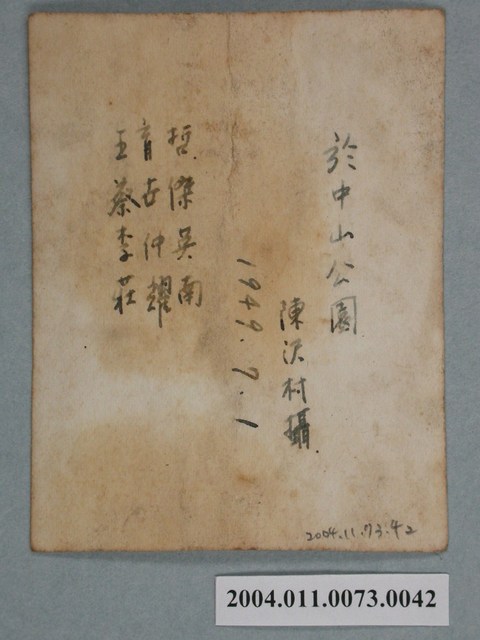 於中山公園
陳沢村攝
1949.7.1
王育哲
蔡 傑
李仲吳
莊耀南
2004.11.73.42
2004.011.0073.0042